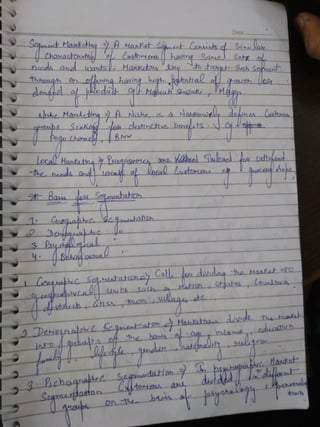 Date
Segment Marketing → A Market Segment Consists of Similar
Characteristics of Customers having Same Sets of
needs and wants. Marketers try to target such Segment
through an offering having high potential of growth
demand of product eg Maruti Suzuki, Maggi
Niche Marketing → A Niche is a Narrowly define Customer
groups Seeking for distinctive benefits. eg
Pogo channel, BMW
Local Marketing → Programmes are Tailored for
the needs and wants of local Customers eg grocery shops.
* Basis for Segmentation
1. Geographic Segmentation
2. Demographic "
3. Psychological "
4. Behavioural "
1 Geographic Segmentation → Calls for dividing the Market into
geographical units such as Nation, States, Countries,
districts, cities, town, village etc.
2 Demographic Segmentation → Marketers divide the Market
into groups on the basis of age, income, education
family, lifestyle, gender, nationality, religion
3. Pschographic Segmentation → In psychographic Market
Segmentation Customers are divided in different
groups on the basis of psychology, personality
traits